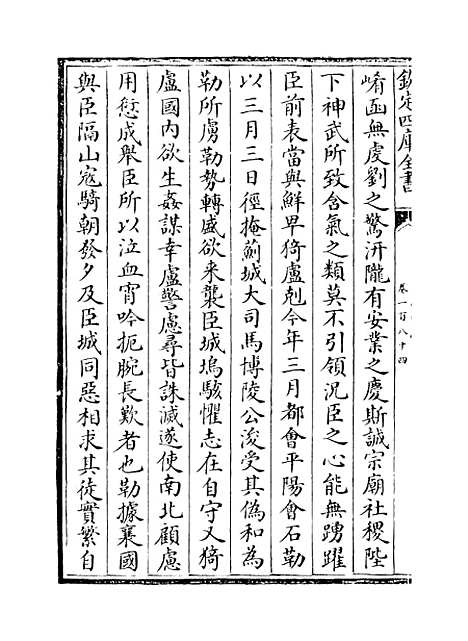 欽定四庫全書
卷一百八十四
崤函無虔劉之驚汧隴有安業之慶斯誠宗廟社稷陛
下神武所致含氣之類莫不引領況臣之心能無踴躍
臣前表當與鮮卑猗盧剋今年三月都會平陽會石勒
以三月三日徑掩薊城大司馬博陵公浚受其偽和為
勒所虜勒勢轉盛欲来襲臣城塢駭懼志在自守又猗
盧國内欲生姦謀幸盧警慮尋皆誅滅遂使南北顧慮
用愆成舉臣所以泣血宵吟扼腕長歎者也勒據襄國
與臣隔山寇騎朝發夕及臣城同惡相求其徒實繁自